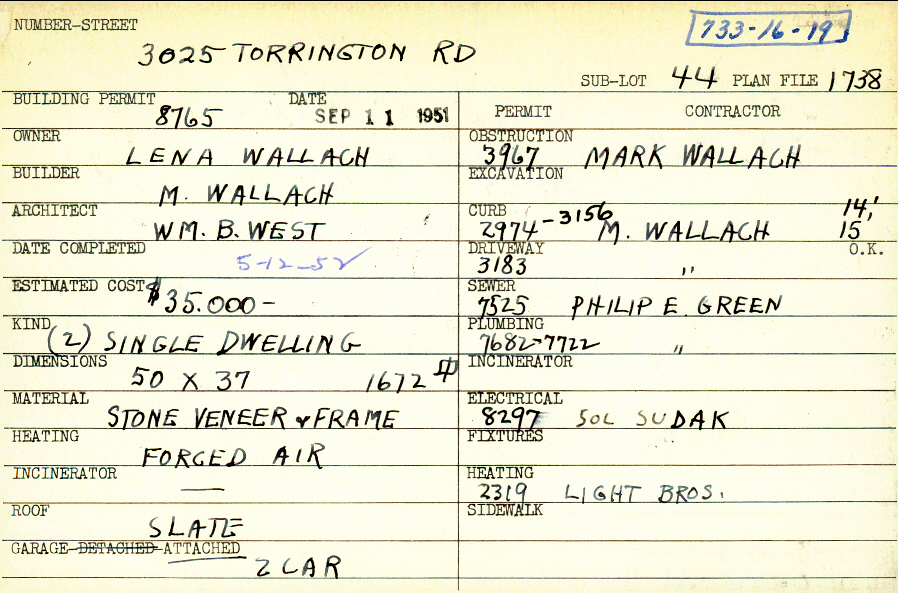 NUMBER-STREET
733-16-19
3025 TORRINGTON RD
SUB-LOT 44 PLAN FILE 1738
BUILDING PERMIT DATE
8765 SEP 11 1951
OWNER
LENA WALLACH
BUILDER
M. WALLACH
ARCHITECT
WM. B. WEST
DATE COMPLETED
5-12-52
ESTIMATED COST
$35.000-
KIND
(2) SINGLE DWELLING
DIMENSIONS
50 X 37 1672
MATERIAL
STONE VENEER & FRAME
HEATING
FORCED AIR
INCINERATOR
—
ROOF
SLATE
GARAGE-DETACHED-ATTACHED
2 CAR
PERMIT CONTRACTOR
OBSTRUCTION
3967 MARK WALLACH
EXCAVATION
CURB
2974-3156 M. WALLACH 14', 15'
DRIVEWAY O.K.
3183 "
SEWER
7525 PHILIP E. GREEN
PLUMBING
7682-7722 "
INCINERATOR
ELECTRICAL
8297 SOL SUDAK
FIXTURES
HEATING
2319 LIGHT BROS.
SIDEWALK